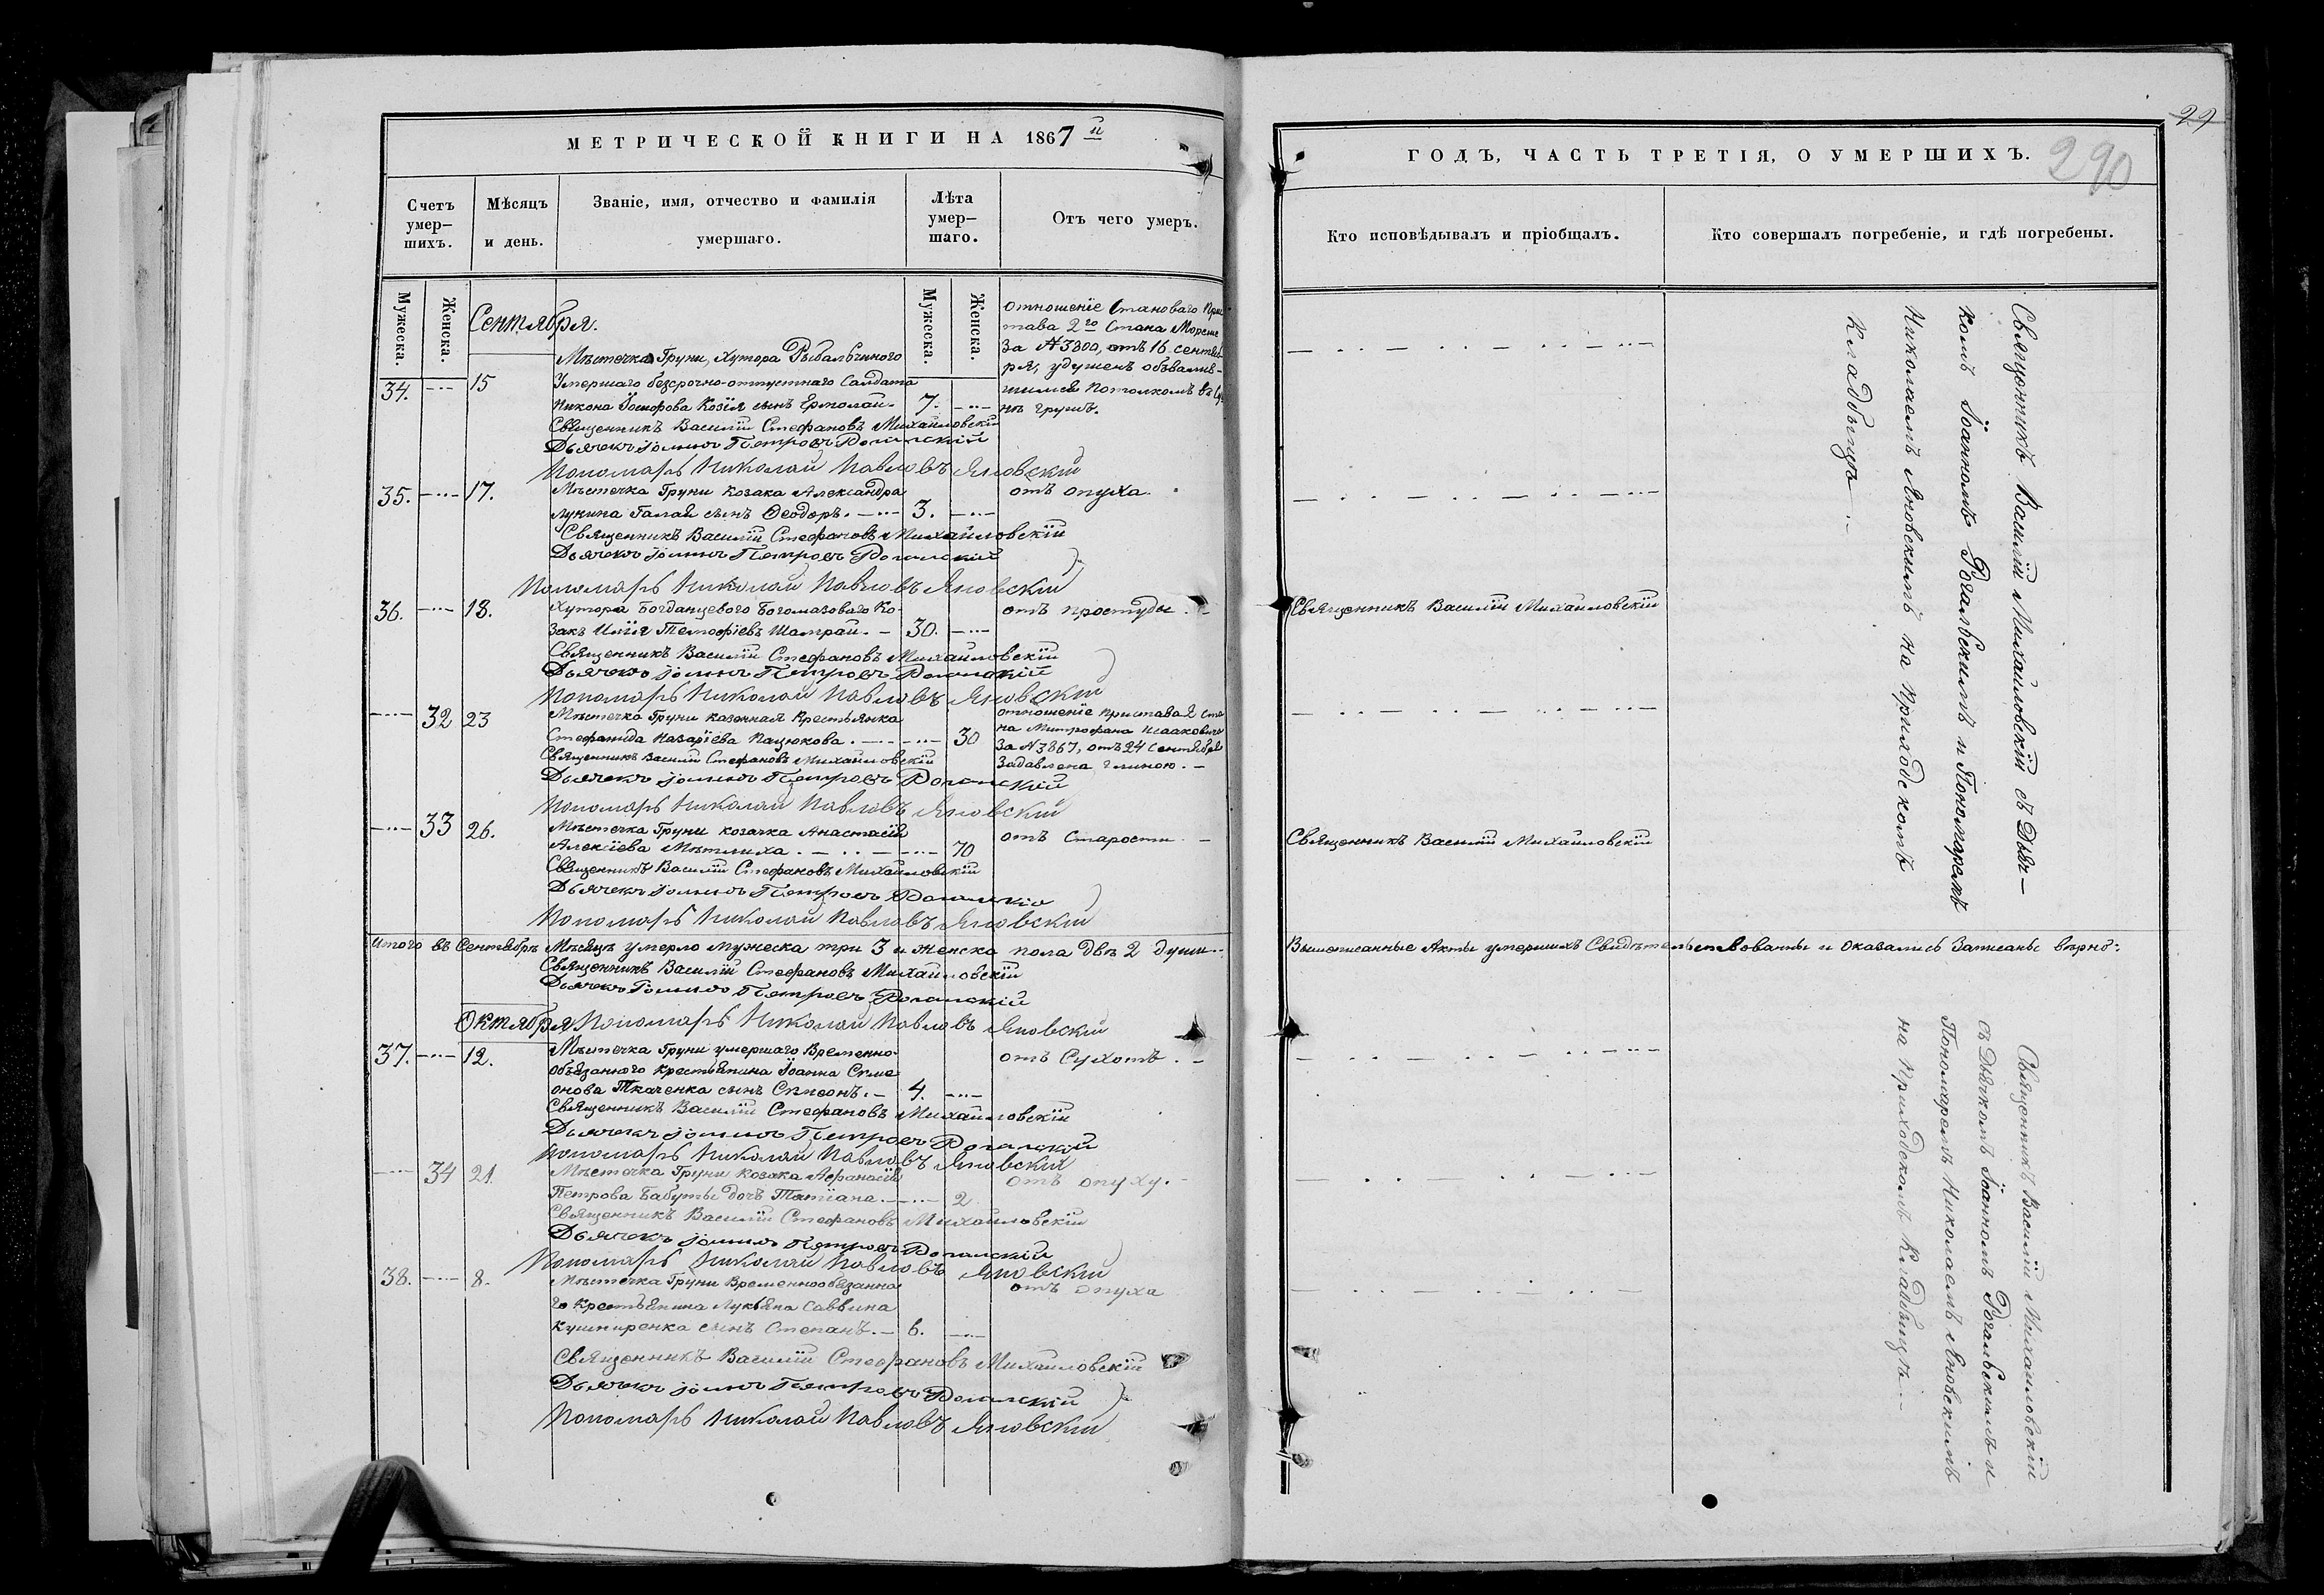 МЕТРИЧЕСКОЙ КНИГИ НА 1867 й
Счетъ умер–шихъ.
Мѣсяцъ и день.
Званіе, имя, отчество и фамилія умершаго.
Лѣта умер–шаго.
Отъ чего умеръ.
Мужеска.
Женска.
Мужеска.
Женска.
Сентября.
34. 15
Мѣстечка Груни, Хутора Рыбальчиного
Умершаго безсрочно-отпускнаго Салдата
Никона Іосифова Козія сынъ Ермолай. 7.
отношеніе Становаго При
става 2го Стана
За № 3800, отъ 16 сентяб
ря, удушенъ обвалив-
шимся потолкомъ въ
Священникъ Василій Стефановъ Михайловскій
Дьячекъ Іоаннъ Петровъ Рогальскій
Пономарь Николай Павловъ Яновскій
35. 17.
Мѣстечка Груни козака Александра
Лукина Галая сынъ Ѳеодоръ. 3.
отъ опуха.
Священникъ Василій Стефановъ Михайловскій
Дьячекъ Іоаннъ Петровъ Рогальскій
Пономарь Николай Павловъ Яновскій
36. 18.
Хутора Богданцевого Богомазоваго Ко-
закъ Илія Тимофіевъ Шамрай. 30.
отъ простуды.
Священникъ Василій Стефановъ Михайловскій
Дьячекъ Іоаннъ Петровъ Рогальскій
Пономарь Николай Павловъ Яновскій
32 23
Мѣстечка Груни казенная крестьянка
Стефанида Назаріева Пацюкова. 30
отношеніе пристава 2 Ста
на Митрофана Исааковича
За № 3867, отъ 24 Сентября
Задавлена глиною.
Священникъ Василій Стефановъ Михайловскій
Дьячекъ Іоаннъ Петровъ Рогальскій
Пономарь Николай Павловъ Яновскій
33 26.
Мѣстечка Груни козачка Анастасія
Алексіева Мѣтлиха. 70
отъ Старости.
Священникъ Василій Стефановъ Михайловскій
Дьячекъ Іоаннъ Петровъ Рогальскій
Пономарь Николай Павловъ Яновскій
Итого въ Сентябрѣ Мѣсяцѣ умерло мужеска три 3 и женска пола двѣ 2 души
Священникъ Василій Стефановъ Михайловскій
Дьячекъ Іоаннъ Петровъ Рогальскій
Октября Пономарь Николай Павловъ Яновскій
37. 12.
Мѣстечка Груни умершаго Временно-
обязаннаго крестьянина Іоанна Симе
онова Ткаченка сынъ Симеонъ. 4.
отъ Сухотъ.
Священникъ Василій Стефановъ Михайловскій
Дьячекъ Іоаннъ Петровъ Рогальскій
Пономарь Николай Павловъ Яновскій
34 21.
Мѣстечка Груни козака Афанасія
Петрова Бабуты дочь Татіана. 2.
отъ опуху.
Священникъ Василій Стефановъ Михайловскій
Дьячекъ Іоаннъ Петровъ Рогальскій
Пономарь Николай Павловъ Яновскій
38. 8.
Мѣстечка Груни Временнообязанна
го крестьянина Лукьяна Саввина
Кушниренка сынъ Степанъ. 6.
отъ опуха
Священникъ Василій Стефановъ Михайловскій
Дьячекъ Іоаннъ Петровъ Рогальскій
Пономарь Николай Павловъ Яновскій
29
290
ГОДЪ, ЧАСТЬ ТРЕТІЯ, О УМЕРШИХЪ.
Кто исповѣдывалъ и пріобщалъ.
Кто совершалъ погребеніе, и гдѣ погребены.
Священникъ Василій Михайловскій
Священникъ Василій Михайловскій
Священникъ Василій Михайловскій съ Дьяч-
комъ Іоанномъ Рогальскимъ и Пономаремъ
Николаемъ Яновскимъ на Приходскомъ
Кладбищѣ
Вышеписанные Акты умершихъ Свидѣтельствованы и оказались Записаны вѣрно:
Священникъ Василій Михайловскій
съ Дьячкомъ Іоанномъ Рогальскимъ и
Пономаремъ Николаемъ Яновскимъ
на Приходскомъ Кладбищѣ